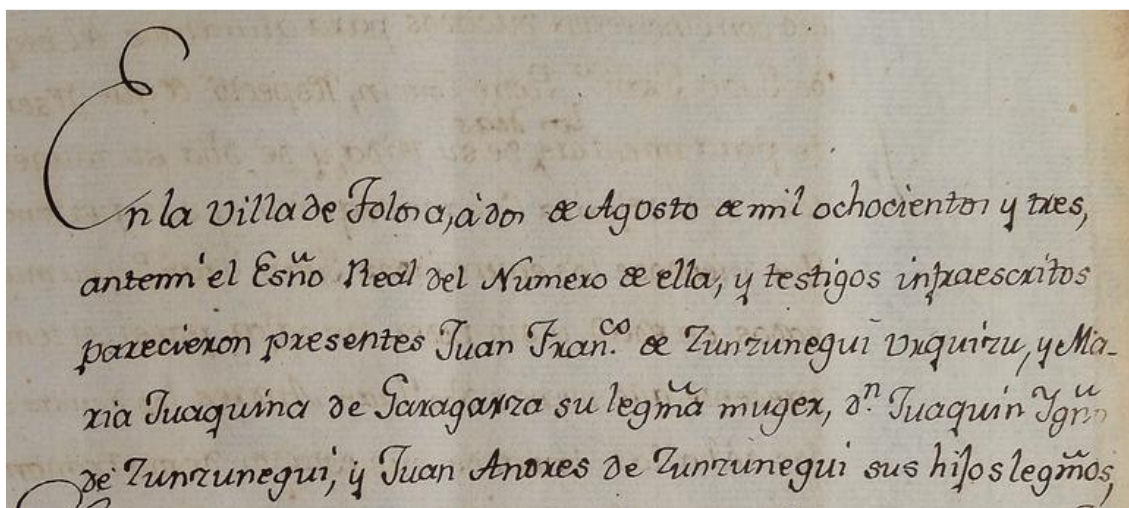 En la villa de Tolosa, à dos de Agosto de mil ochocientos y tres,
antemi el Esño Real del Numero de ella, y testigos infraescritos
parecieron presentes Juan Fran.co de Zunzunegui Urquizu, y Ma-
ria Juaquina de Garagarza su legma muger, d.n Juaquin Ygno
de Zunzunegui, y Juan Andres de Zunzunegui sus hijos legmos,